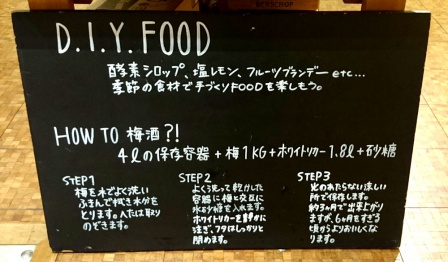 D.I.Y. FOOD
酵素シロップ、塩レモン、フルーツブランデー etc...
季節の食材で手づくりFOODを楽しもう。
HOW TO 梅酒?!
4ℓの保存容器+梅1KG+ホワイトリカー1.8ℓ+砂糖
STEP 1
梅を水でよく洗い
ふきんで拭き水分を
とります。ヘタは取り
のぞきます。
STEP 2
よく洗って乾かした
容器に梅と交互に
氷砂糖を入れます。
ホワイトリカーを静かに
注ぎ、フタはしっかりと
閉めます。
STEP 3
光のあたらない涼しい
所で保存します。
約3ヶ月で出来上がり
ますが、6ヶ月をすぎる
頃からよりおいしくな
ります。